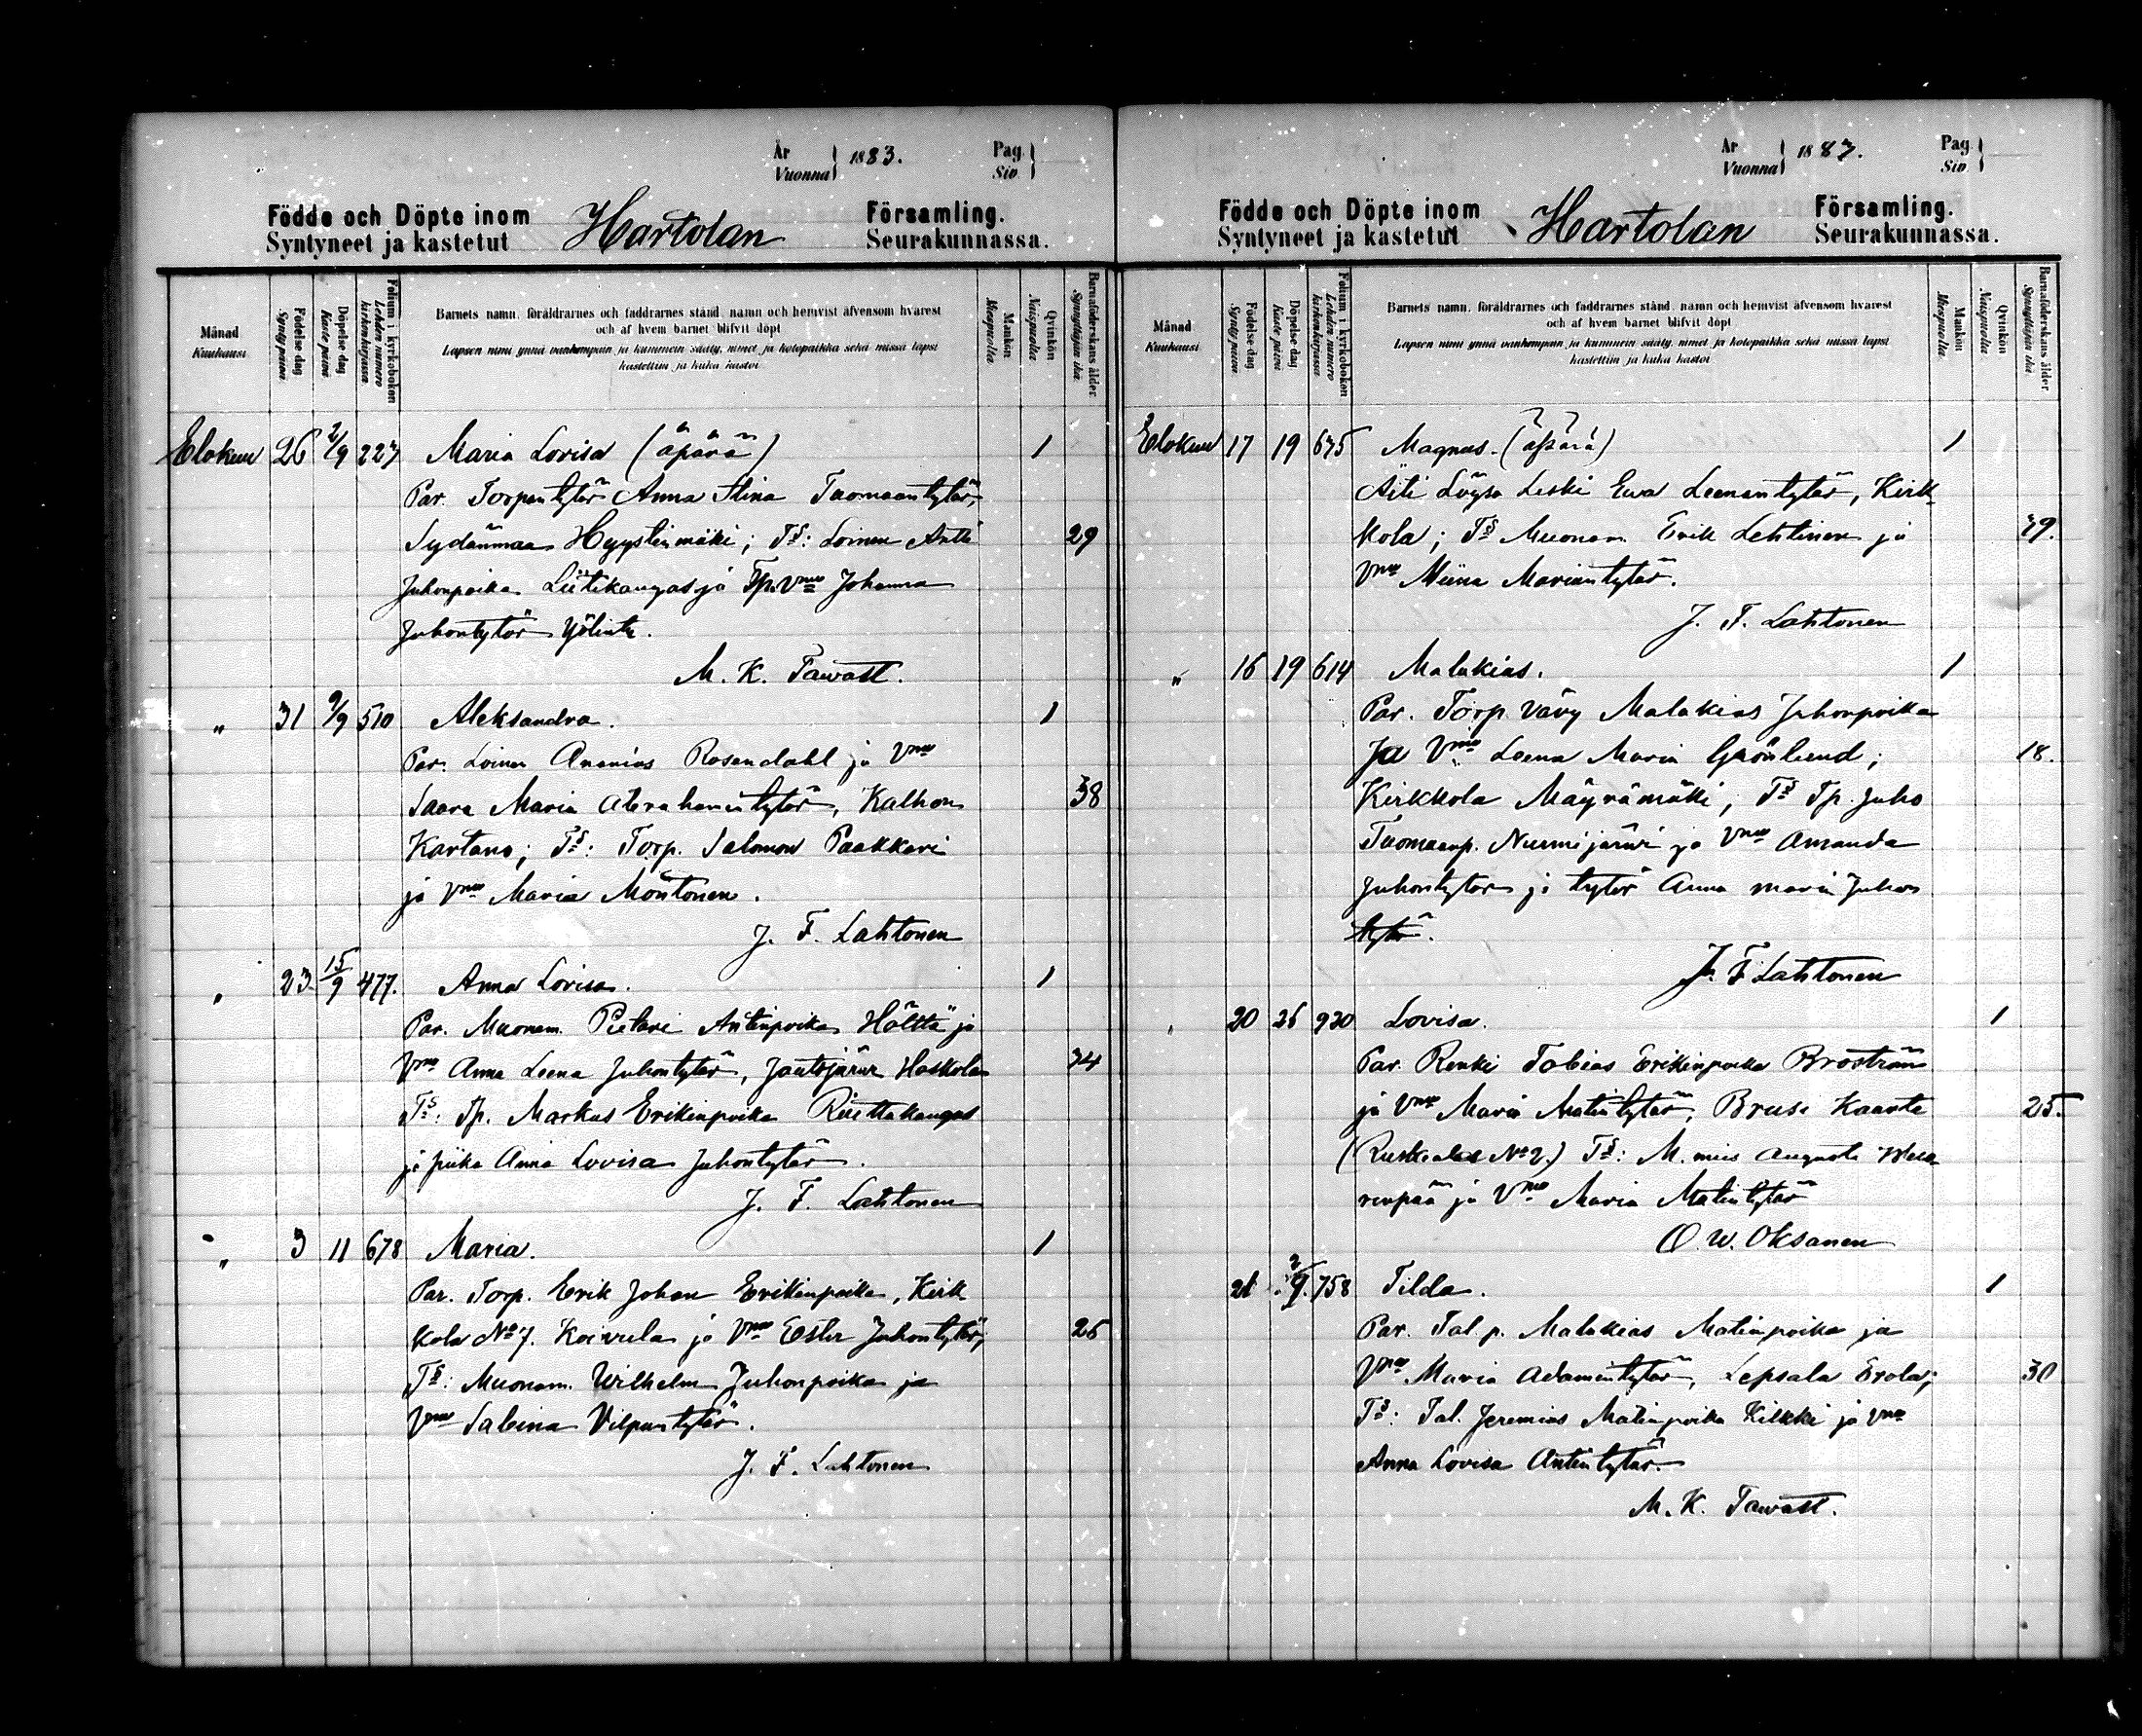 År
Vuonna
1883.
Pag.
Siv.
Födde och Döpte inom
Syntyneet ja kastetut
Hartolan
Församling.
Seurakunnassa.
Månad
Kuukausi
Födelse dag
Synty päivä
Döpelse dag
Kaste päivä
Folium i kyrkoboken
Lehden numero kirkonkirjassa
Barnets namn, föräldrarnes och faddrarnes stånd, namn och hemvist äfvensom hvarest
och af hvem barnet blifvit döpt
Lapsen nimi ynnä vanhempain ja kummein sääty, nimet ja kotopaikka sekä missä lapsi
kastettiin ja kuka kastoi
Mankön
Miespuolta
Qvinkön
Naispuolta
Barnaföderskans ålder
Synnyttäjän ikä
Elokuu 26 2/9 227 Maria Lovisa (äpärä) 1
Par. Torpantytär Anna Stina Tuomaantytär,
Sydänmaa Hyystinmäki; Ts: Loinen Antti 29
Juhonpoika Liitikangas ja Tp. Vmo Johanna
Juhontytär
M. K. Tawast.
" 31 9/9 510 Aleksandra. 1
Par. Loinen Ananias Rosendahl ja Vmo
Saara Maria Abrahamintytär, Kalhon 38
Kartano; Ts: Torp. Salomon Paakkari
ja Vmo Maria Möntönen.
J. F. Lahtonen
" 23 15/9 477. Anna Lovisa. 1
Par. Muonam. Pietari Antinpoika Hölttä ja
Vmo Anna Leena Juhontytär, Joutsjärvi Haskola 34
Ts: Tp. Markus Erikinpoika Riuttakangas
ja piika Anna Lovisa Juhontytär.
J. F. Lahtonen
" 3 11 678 Maria. 1
Par. Torp. Erik Johan Erikinpoika, Kirk
kola No 7. Koivula ja Vmo Ester Juhontytär; 26
Ts: Muonam. Wilhelm Juhonpoika ja
Vmo Sabina Vilpuntytär.
J. F. Lahtonen
År
Vuonna
1887.
Pag.
Siv.
Födde och Döpte inom
Syntyneet ja kastetut
Hartolan
Församling.
Seurakunnassa.
Månad
Kuukausi
Födelse dag
Synty päivä
Döpelse dag
Kaste päivä
Folium i kyrkoboken
Lehden numero kirkonkirjassa
Barnets namn, föräldrarnes och faddrarnes stånd, namn och hemvist äfvensom hvarest
och af hvem barnet blifvit döpt
Lapsen nimi ynnä vanhempain ja kummein sääty, nimet ja kotopaikka sekä missä lapsi
kastettiin ja kuka kastoi
Mankön
Miespuolta
Qvinkön
Naispuolta
Barnaföderskans ålder
Synnyttäjän ikä
Elokuu 17 19 675 Magnus. (äpärä) 1
Äiti Löysä Leski Ewa Leenantytär, Kirk
kola; Ts Muonam. Erik Lehtinen ja 39.
Vmo Miina Mariantytär.
J. F. Lahtonen
" 16 19 614 Malakias. 1
Par. Torp vävy Malakias Juhonpoika
Ja Vmo Leena Maria Grönlund; 18.
Kirkkola Mäyrämäki; Ts Tp. Juho
Tuomaanp. Nurmijärvi ja Vmo Amanda
Juhontytär ja tytär Anna Maria Juhon
tytär.
J. F. Lahtonen
" 20 26 930 Lovisa. 1
Par. Renki Tobias Erikinpoika Broström
ja Vmo Maria Matintytär, Brusi Kaarta 25.
(Ruskeala No 2.) Ts: M. mies Augusti
ja Vmo Maria Matintytär
O. W. Oksanen
21 2/9. 758 Tilda. 1
Par. Tal. p. Malakias Matinpoika ja
Vmo Maria Adamintytär, Lepsala Erola; 30
Ts: Tal. Jeremias Matinpoika Kilkki ja Vmo
Anna Lovisa Antintytär.
M. K. Tawast.